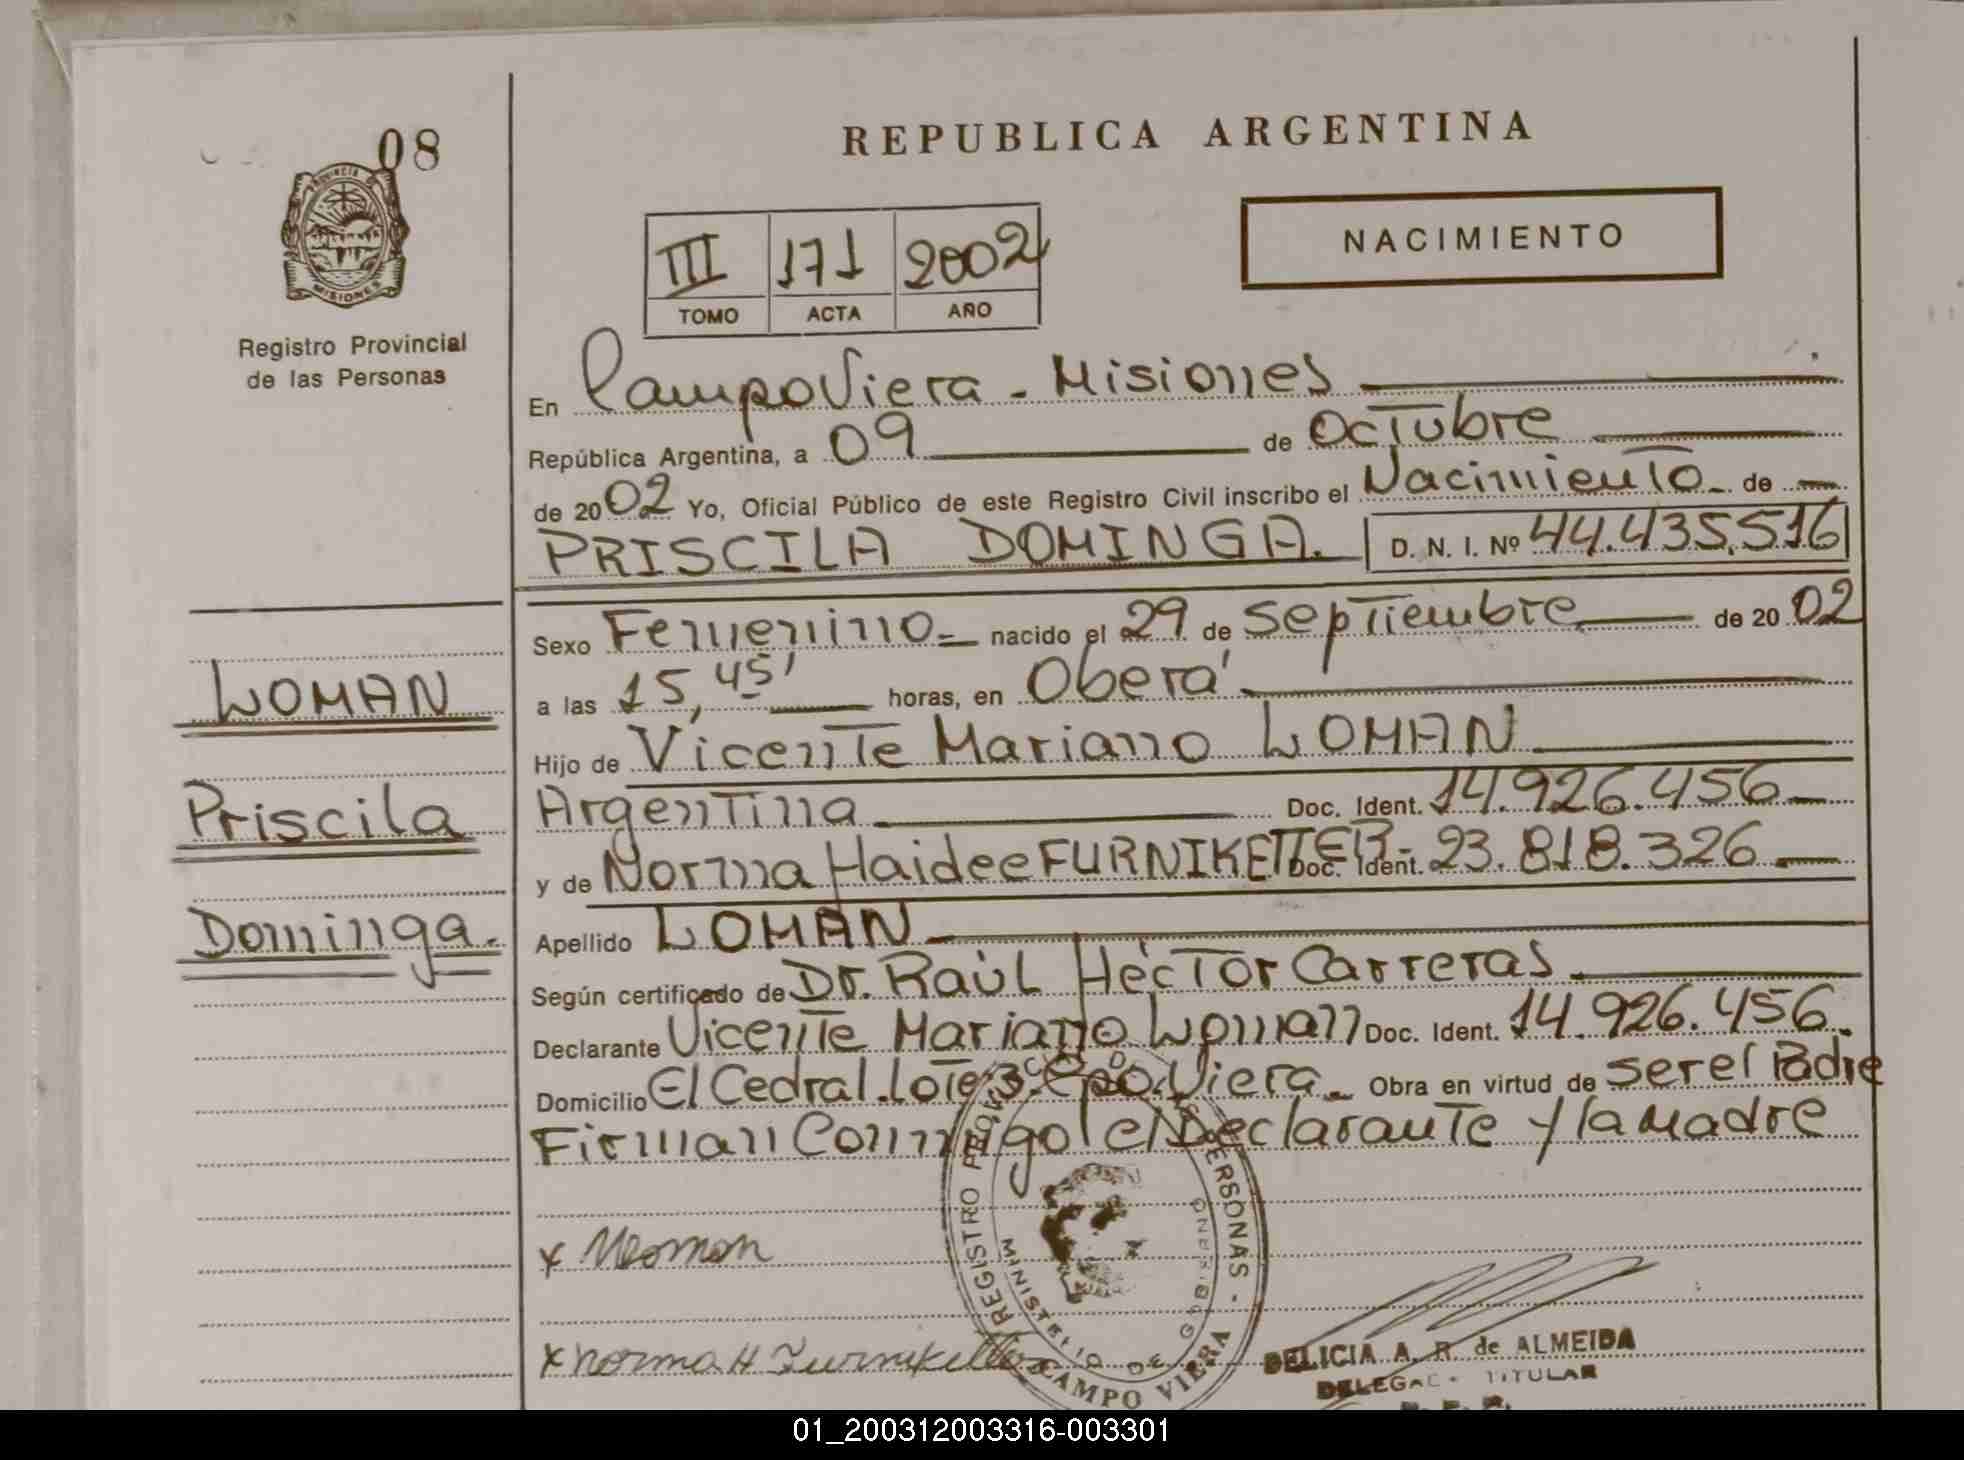 08
PROVINCIA DE
MISIONES
Registro Provincial
de las Personas
REPUBLICA ARGENTINA
NACIMIENTO
III 171 2002
TOMO ACTA AÑO
En Campo Viera - Misiones
República Argentina, a 09 de Octubre
de 2002 Yo, Oficial Público de este Registro Civil inscribo el Nacimiento de
PRISCILA DOMINGA. D. N. I. Nº 44.435.516
Sexo Femenino nacido el 29 de Septiembre de 2002
a las 15,45' horas, en Oberá
Hijo de Vicente Mariano LOMAN
Argentina Doc. Ident. 14.926.456
y de Norma Haidee FURNIKETTER - Doc. Ident. 23.818.326
Apellido LOMAN
Según certificado de Dr. Raúl Héctor Carreras
Declarante Vicente Mariano Loman Doc. Ident. 14.926.456.
Domicilio El Cedral. Lote 3. Cpo. Viera Obra en virtud de ser el Padre
Firman Conmigo el Declarante y la Madre
LOMAN
Priscila
Dominga.
x
x Norma H Furniketter
REGISTRO PROVINCIAL DE LAS PERSONAS -
MINISTERIO DE GOBIERNO
CAMPO VIERA
DELICIA A. R de ALMEIDA
DELEGAD TITULAR
01_200312003316-003301